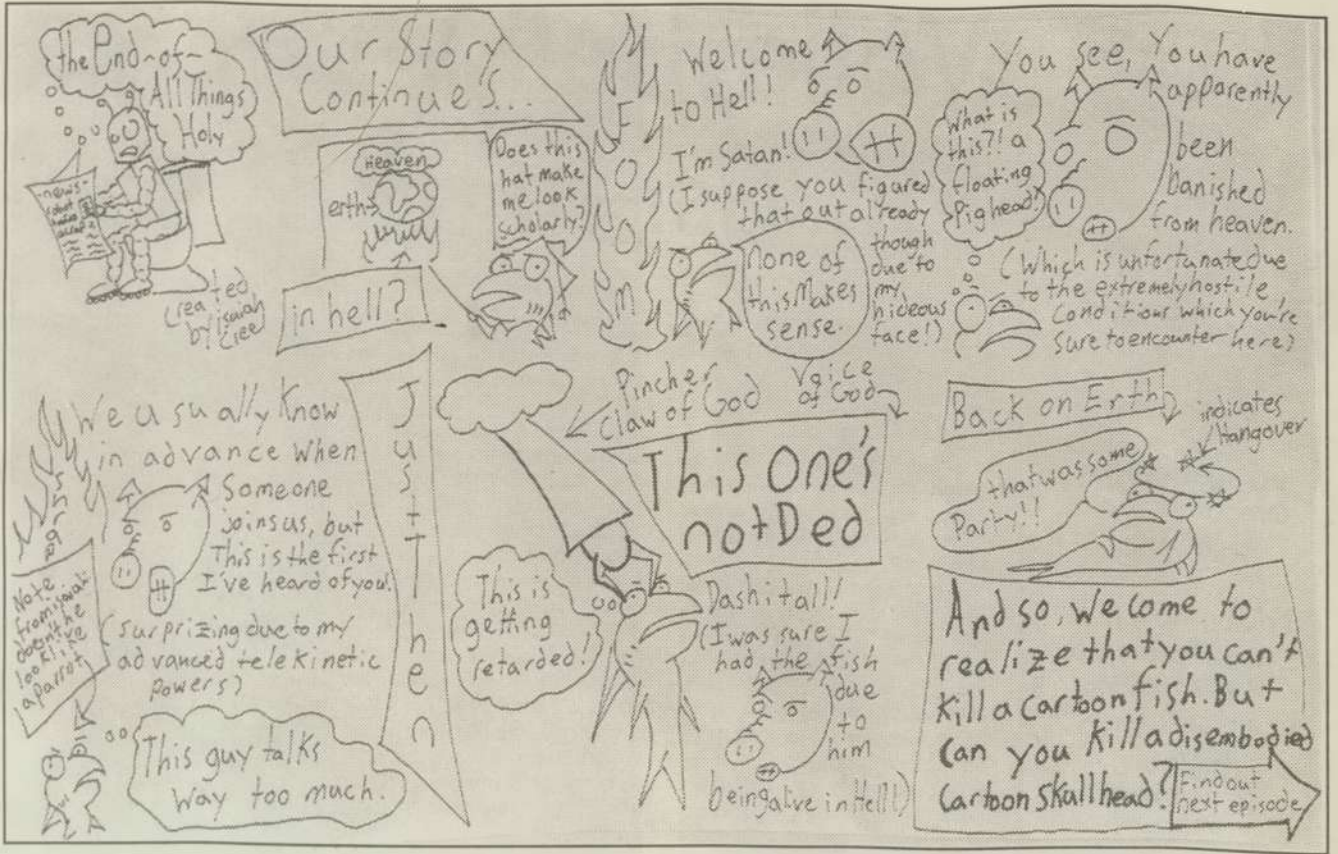 the End-of-
All Things
Holy
-news-
created
by Isaiah
Creel
Our Story
Continue's...
Heaven
erth→
in hell?
Does this
hat make
me look
scholarly?
FOOM
Welcome
to Hell!
I'm Satan!
(I suppose you figured
that out already
though
due to
my
hideous
face!)
none of
this Makes
sense.
You see, You have
apparently
been
banished
from heaven.
(Which is unfortunate due
to the extremely hostile
conditions which you're
sure to encounter here)
What is
this?! a
floating
Pighead!
We usually Know
in advance when
Someone
joins us, but
This is the first
I've heard of you!
(surprizing due to my
advanced telekinetic
powers)
Note
from isaiah:
doesn't he
look like
a parrot
This guy talks
way too much.
Just Then
Pincher
Claw of God
Voice
of God
This One's
not Ded
This is
getting
retarded!
Dash it all!
(I was sure I
had the fish
due
to
him
being alive in Hell!)
Back on Erth
indicates
Hangover
that was some
Party!!
And so, we come to
realize that you can't
Kill a cartoon fish. But
can you Kill a disembodied
Cartoon Skullhead?
Find out
next episode